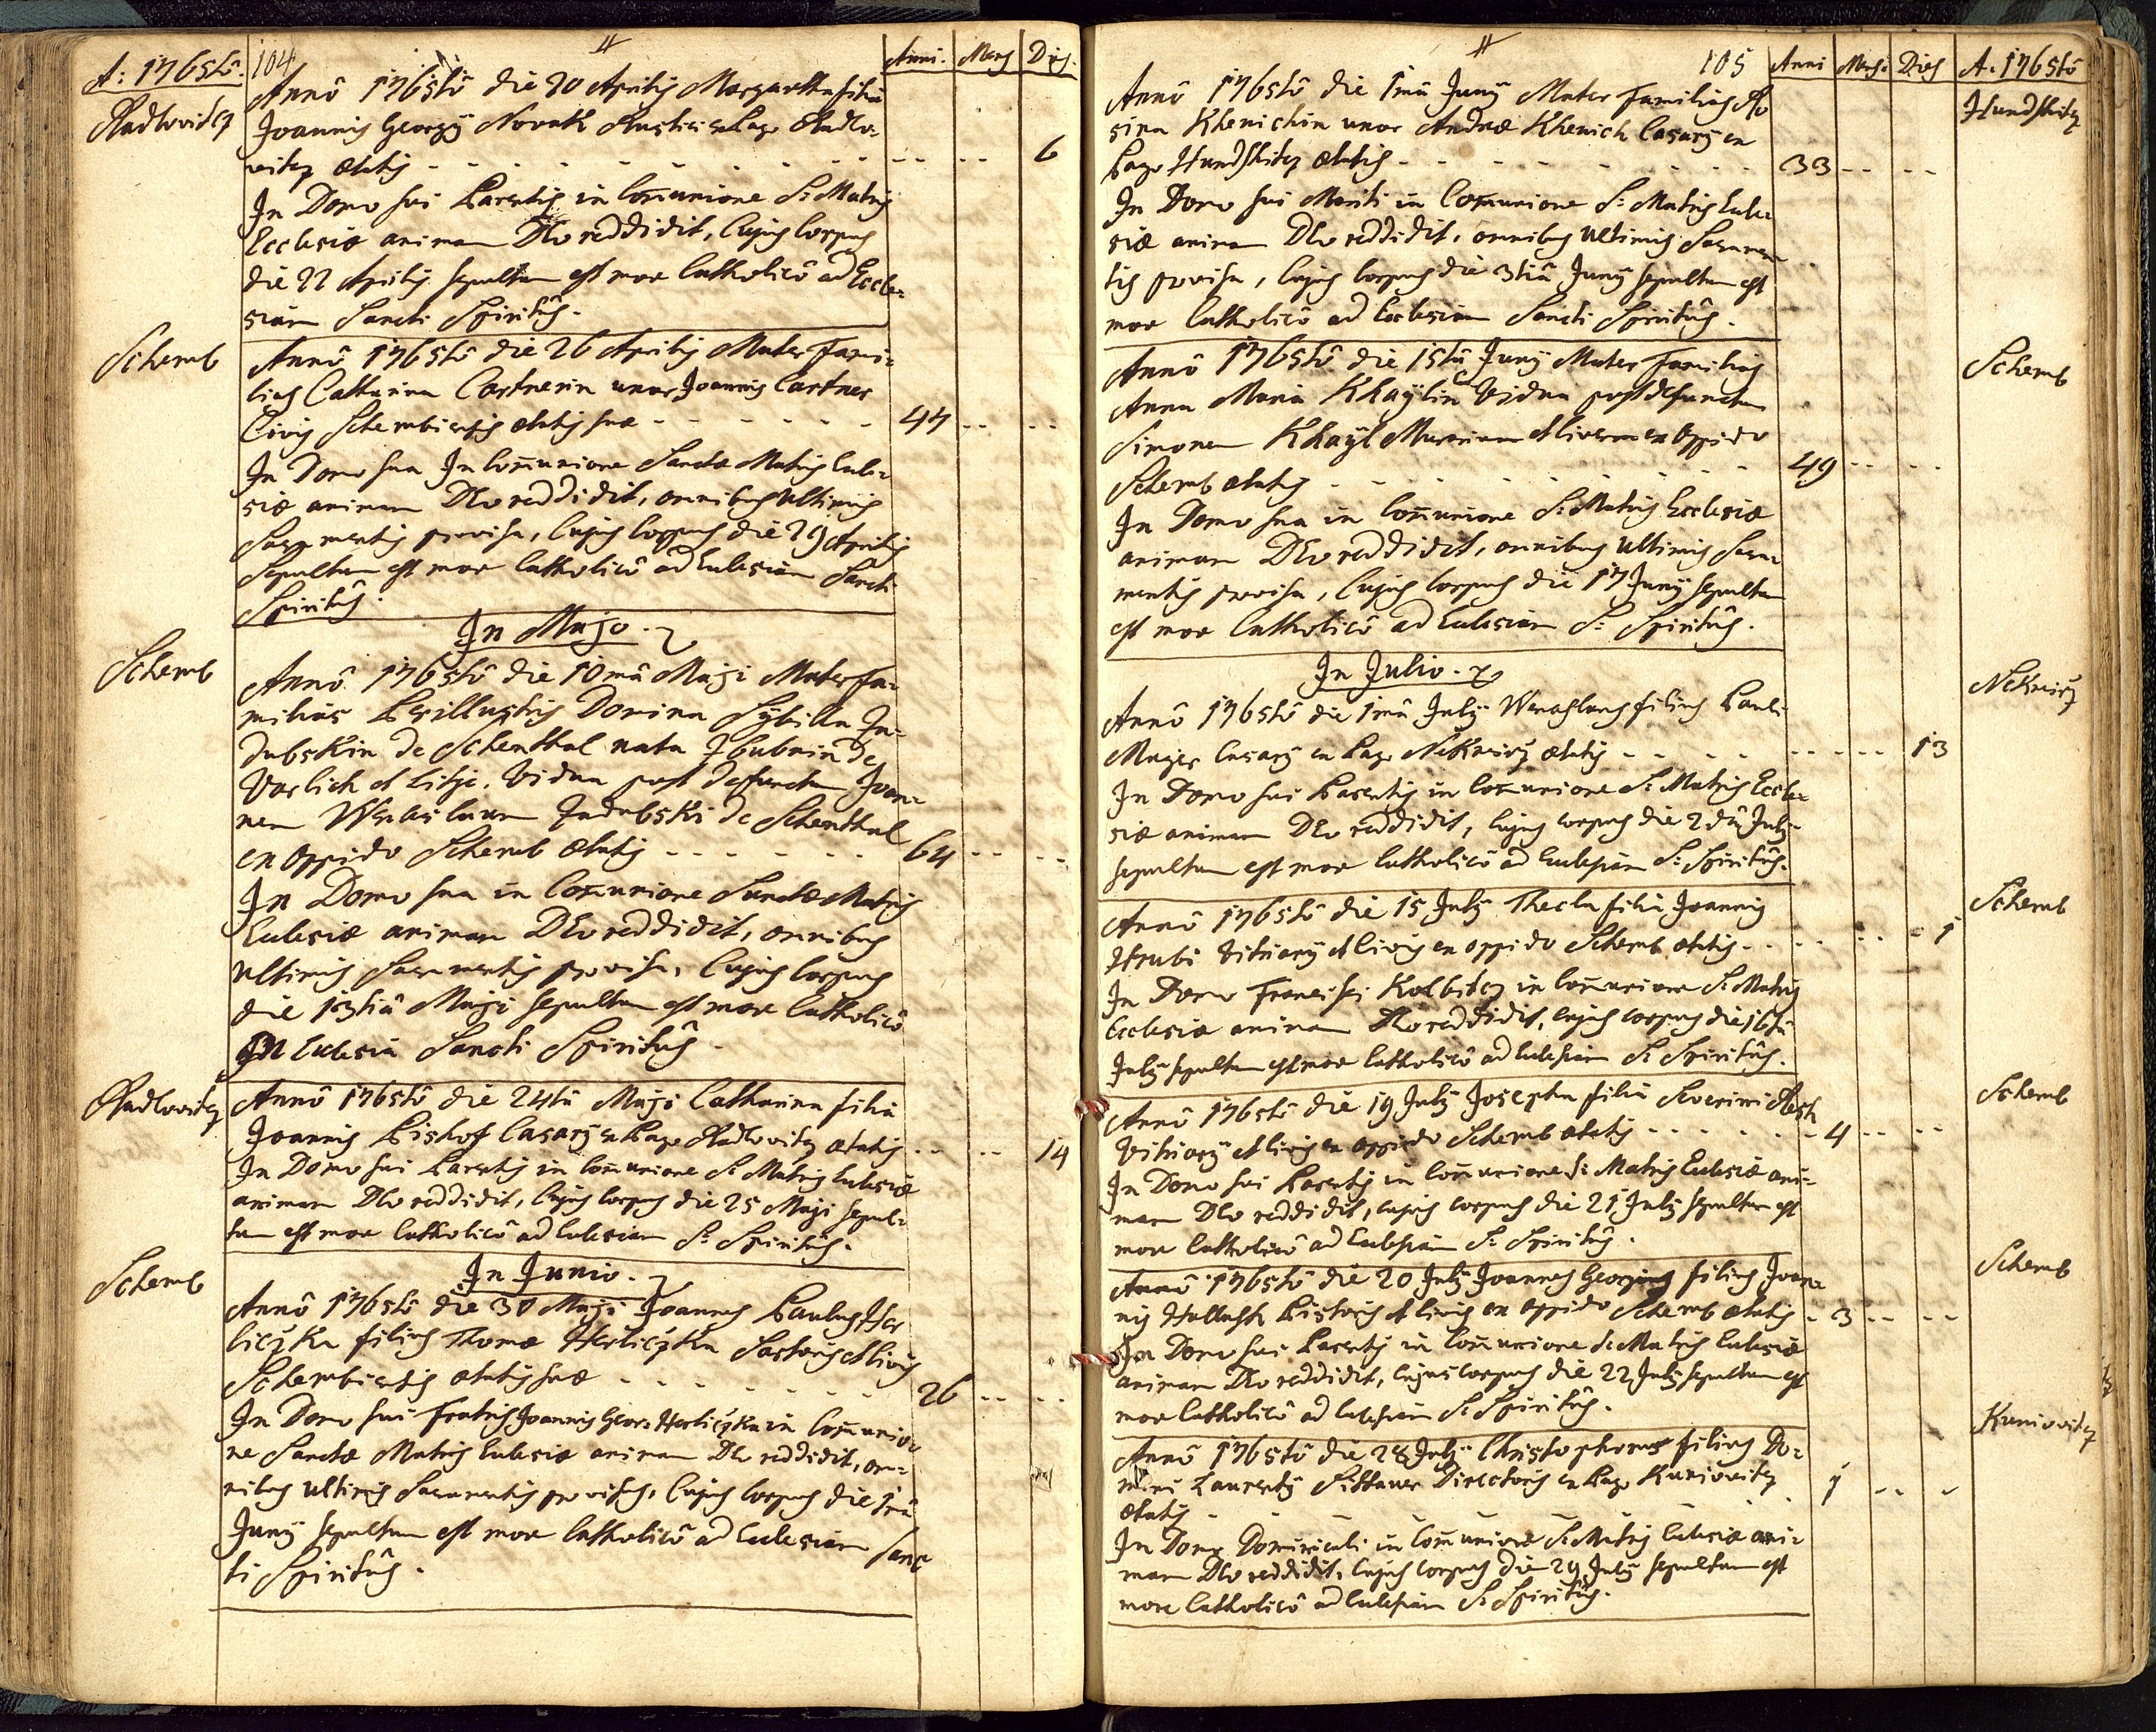 A: 1765tô. 104 Anni. Mens Dies.
Radlovitz
Annô 1765tô die 20 Aprilis Margaretha filia
Joannis Georgÿ Novakh Rustici ex Pago Radlo-
vitz ætatis - - - - - - - - - - 6
In Domo sui Parentis in Com̄unione S: Matris
Ecclesiæ animam Deo reddidit, Cujus Corpus
die 22 Aprilis sepultum est more Catholicô ad Eccle-
siam Sancti Spiritûs.
Schemb
Annô 1765tô die 26 Aprilis Mater Fami-
lias Catharina Cartnerin uxor Joannis Cartner
Civis Schembiensis ætatis suæ - - - - - - 44 - - - -
In Domo sua In Com̄unione Sanctæ Matris Eccle-
siæ animam Deo reddidit, omnibus Ultimis
Sacramentis provisa, Cujus Corpus die 29 Aprilis
Sepultum est more Catholicô ad Ecclesiam Sancti
Spiritûs.
In Majo.
Schemb
Annô 1765tô die 10mâ Maji Mater Fa-
milias Perillustris Domina Sÿbilla
de Schenthal nata de
Vorlich et Litje. Vidua post deffunctum Joan-
nem de Schenthal
ex oppido Schemb Ætatis - - - - - - 64 - - - -
In Domo sua in Com̄unione Sanctæ Matris
Ecclesiæ animam Deo reddidit, omnibus
Ultimis Sacramentis provisa, Cujus Corpus
die 13tiâ Maji sepultum est more Catholicô
In Ecclesia Sancti Spiritûs.
Radlovitz
Annô 1765tô die 24tâ Maji Catharina filia
Joannis Bishof Casarÿ ex Pago Radlovitz ætatis - - - - 14
In Domo sui Parentis in Com̄unione S: Matris Ecclesiæ
animam Deo reddidit, Cujus Corpus die 25 Maji sepul-
tum est more Catholicô ad Ecclesiam S: Spiritûs.
In Junio.
Schemb
Annô 1765tô die 30 Maji Joannes Paulus Her
liczka filius Thomæ Herliczka Sartoris et Civis
Schembiensis ætatis suæ - - - - - - - - 26 - - - -
In Domo sui Fratris Joannis Geor: Herliczka in Com̄unio-
ne Sanctæ Matris Ecclesiæ animam Deo reddidit, om-
nibus Ultimis Sacramentis provisus, Cujus Corpus die 1mâ
Junÿ sepultum est more Catholicô ad Ecclesiam Sanc
ti Spiritûs.
105 Anni Mens. Dies A. 1765tô
Hundshitz
Annô 1765tô die 1mâ Junÿ Mater Familias Ro
sina Khenichin uxor Andreæ Khenich Casarÿ ex
Pago Hundshitz ætatis - - - - - - - - 33 - - - -
In Domo sui Mariti in Com̄unione S: Matris Eccle-
siæ animam Deo reddidit, omnibus Ultimis Sacramen
tis provisa, Cujus Corpus die 3tiâ Junÿ sepultum est
more Catholicô ad Ecclesiam Sancti Spiritûs.
Schemb
Annô 1765tô die 15tâ Junÿ Mater Familias
Anna Maria Khaÿlin Vidua post defunctum
Simonem Khaÿl Murarium et Civem ex Oppido
Schemb ætatis - - - - - - - - 49 - - - -
In Domo sua in Com̄unione S: Matris Ecclesiæ
animam Deo reddidit, omnibus Ultimis Sacra-
mentis provisa, Cujus Corpus die 17 Junÿ sepultum
est more Catholicô ad Ecclesiam S: Spiritûs.
In Julio.
Nekmirz
Annô 1765tô die 1mâ Julÿ Wenceslaus filius Pauli
Majer Casarÿ ex Pago Nekmirz ætatis - - - - - - - - 13
In Domo sui Parentis in Com̄unione S: Matris Eccle-
siæ animam Deo reddidit, Cujus corpus die 2dâ Julÿ
sepultum est more Catholicô ad Ecclesiam S: Spiritûs.
Schemb
Annô 1765tô die 15 Julÿ Thecla filia Joannis
Hrubi Vitriarÿ et Civis ex oppido Schemb ætatis - - - - - - 1
In Domo Francisci Kolbitz in Com̄unione S: Matris
Ecclesiæ animam Deo reddidit, cujus corpus die 16tâ
Julÿ sepultum est more Catholicô ad Ecclesiam S: Spiritûs.
Schemb
Annô 1765tô die 19 Julÿ Josepha filia Severini
Vitriarÿ et Civis ex oppido Schemb ætatis - - - - - - 4 - - - -
In Domo sui Parentis in Com̄unione S: Matris Ecclesiæ ani-
mam Deo reddidit, cujus corpus die 21 Julÿ sepultum est
more Catholicô ad Ecclesiam S: Spiritûs.
Schemb
Annô 1765tô die 20 Julÿ Joannes Georgius filius Joan-
nis Pistoris et Civis ex oppido Schemb ætatis - 3 - - - -
In Domo sui Parentis in Com̄unione S: Matris Ecclesiæ
animam Deo reddidit, cujus corpus die 22 Julÿ sepultum est
more Catholicô ad Ecclesiam S: Spiritûs.
Kuniovitz
Annô 1765tô die 28 Julÿ Christophorus filius Do-
mini Laurentÿ Sittauer Directoris ex Pago Kuniovitz
ætatis - - - - - - 1 - - -
In Domo Dominicali in Com̄unione S: Matris Ecclesiæ ani-
mam Deo reddidit, Cujus Corpus die 29 Julÿ sepultum est
more Catholicô ad Ecclesiam S: Spiritûs.